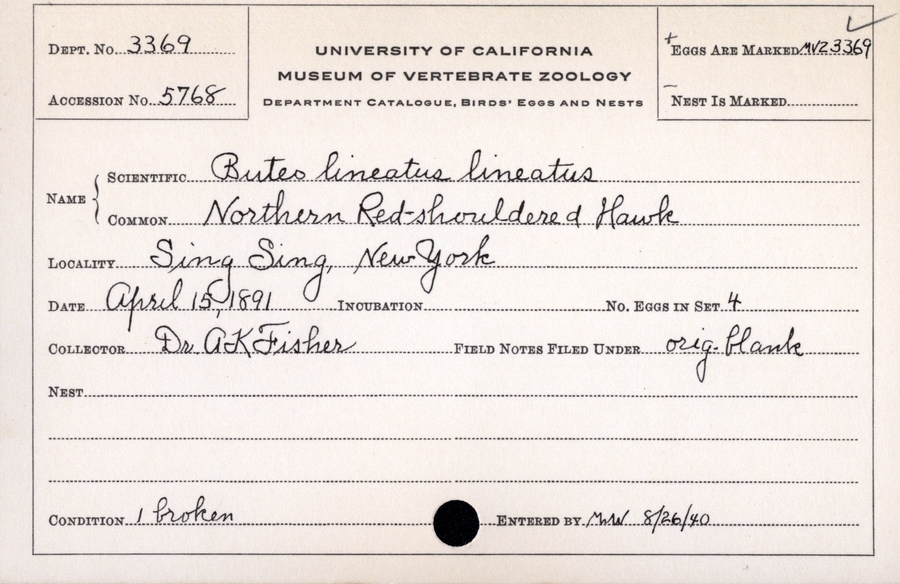 Dept. No. 3369
Accession No. 5768
UNIVERSITY OF CALIFORNIA
MUSEUM OF VERTEBRATE ZOOLOGY
Department Catalogue, Birds' Eggs and Nests
+ Eggs Are Marked MVZ3369
- Nest Is Marked
Name
Scientific Buteo lineatus lineatus
Common Northern Red-shouldered Hawk
Locality Sing Sing, New York
Date April 15, 1891 Incubation No. Eggs in Set 4
Collector Dr. A K Fisher Field Notes Filed Under orig. blank
Nest
Condition 1 broken Entered by MW 8/26/40